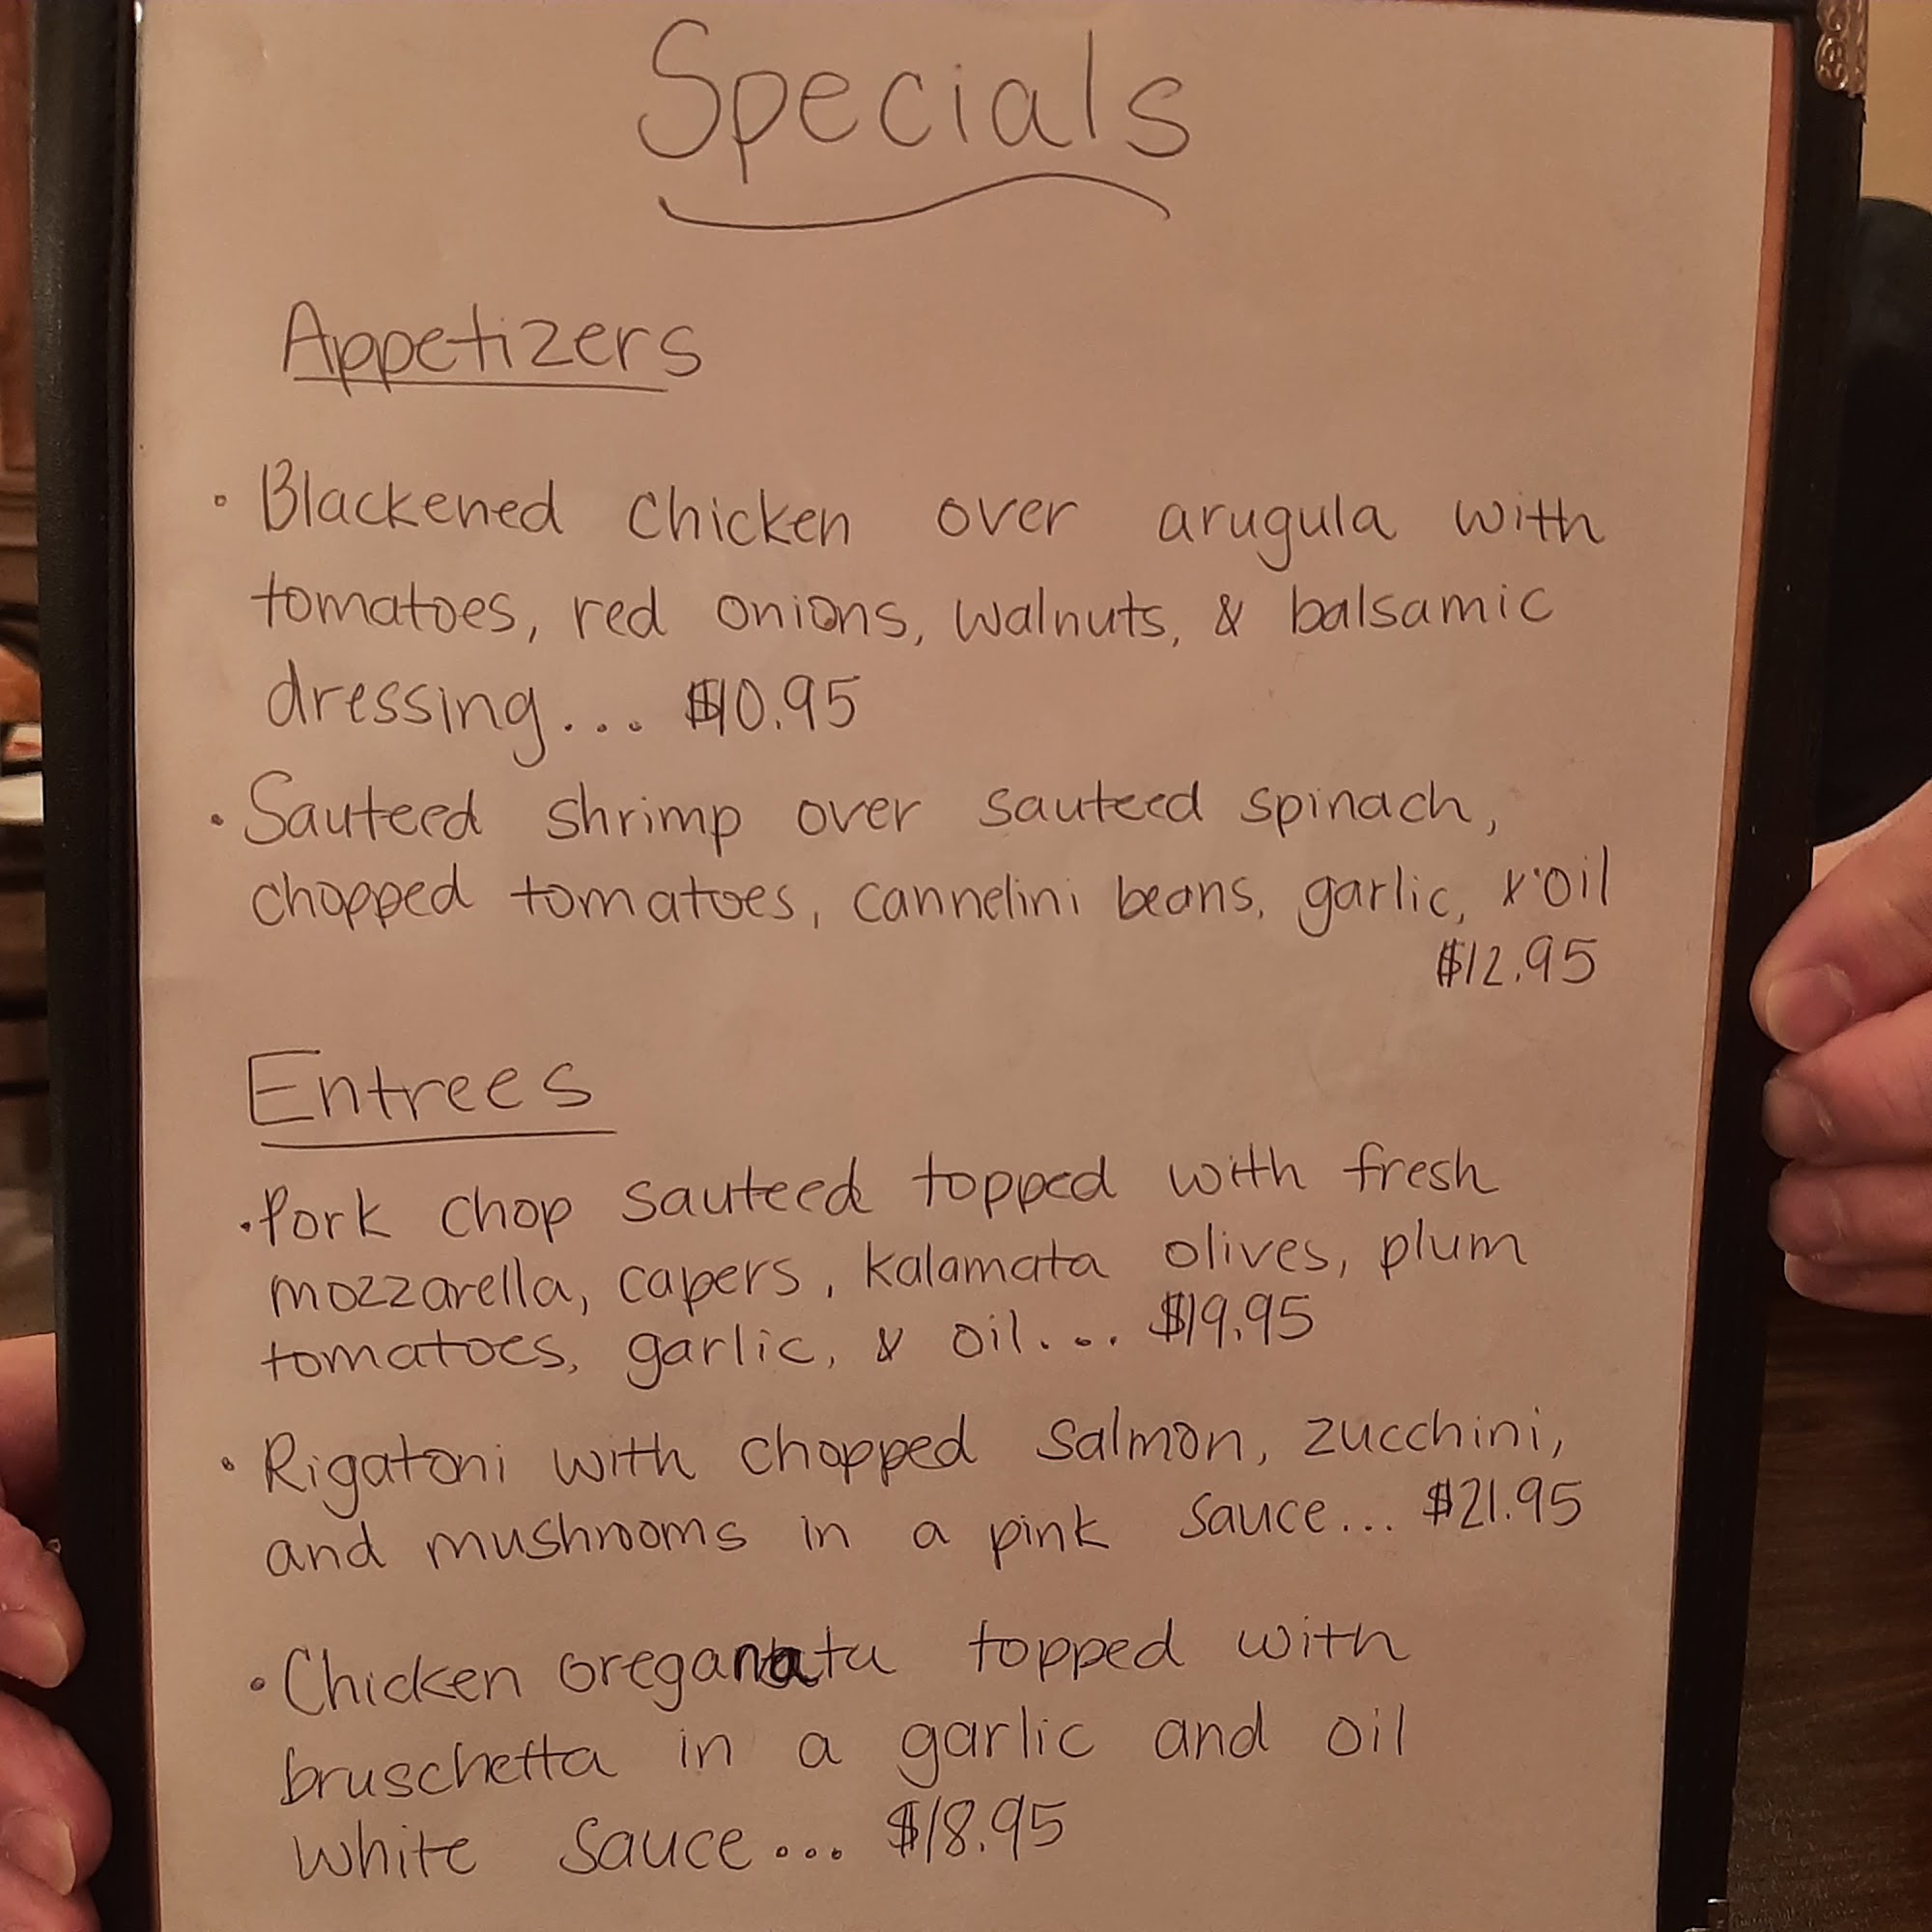 Specials
Appetizers
• Blackened chicken over arugula with
tomatoes, red onions, walnuts, & balsamic
dressing... $10.95
• Sauteed shrimp over sauteed spinach,
chopped tomatoes, cannelini beans, garlic, & oil
$12.95
Entrees
• Pork chop sauteed topped with fresh
mozzarella, capers, kalamata olives, plum
tomatoes, garlic, & oil... $19.95
• Rigatoni with chopped salmon, zucchini,
and mushrooms in a pink sauce... $21.95
• Chicken oreganata topped with
bruschetta in a garlic and oil
white sauce... $18.95